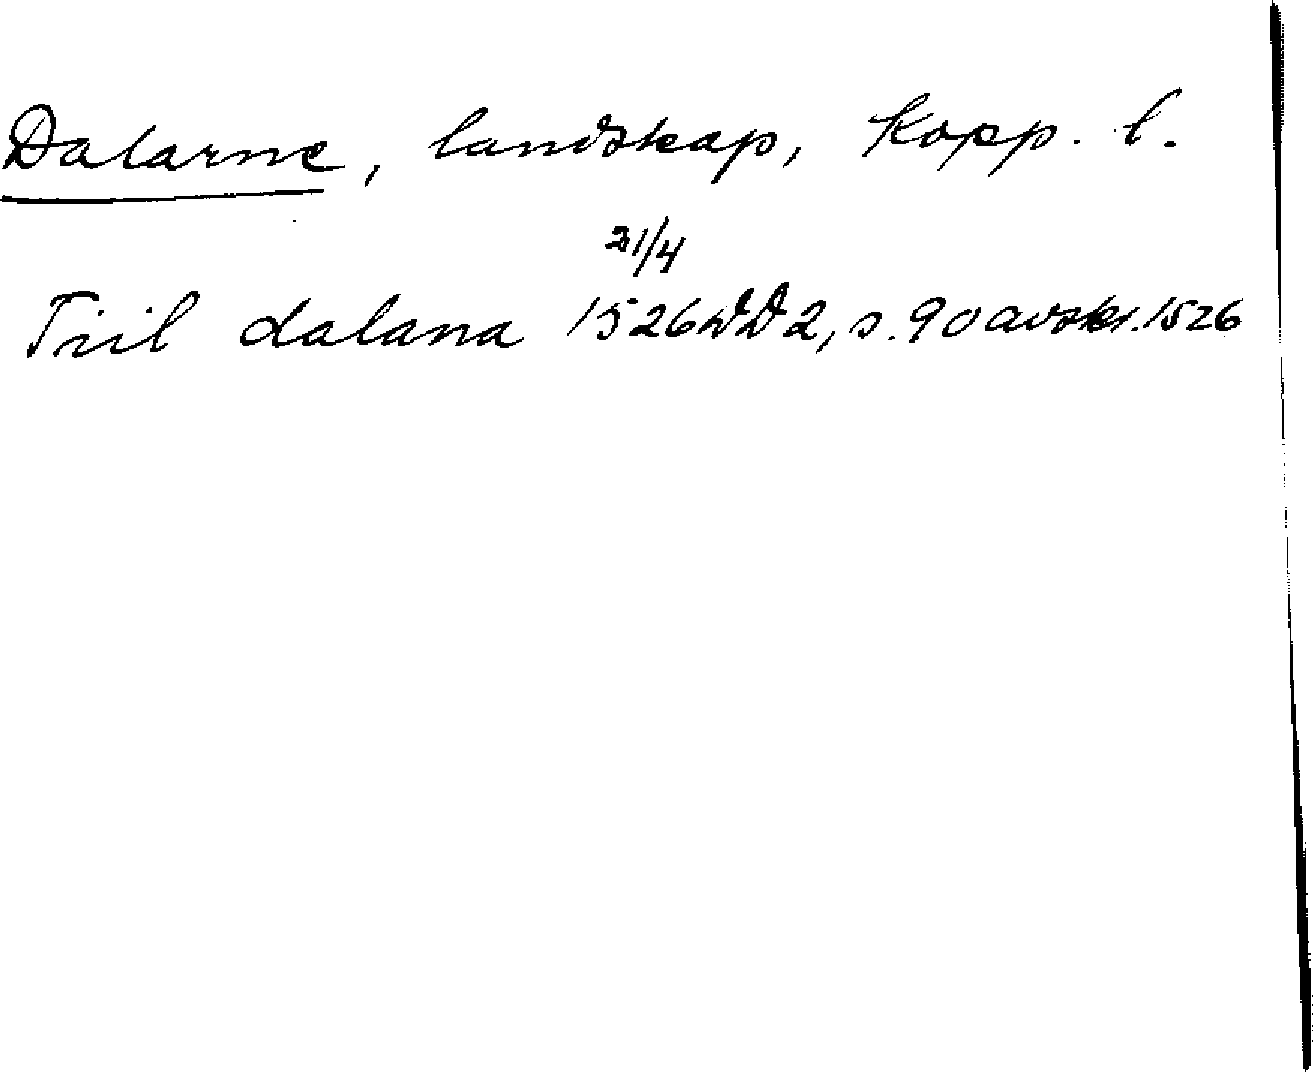 Dalarne, landskap, Kopp. l.
21/4
Tiil dalana 1526 DD 2, s. 90 avskr. 1526